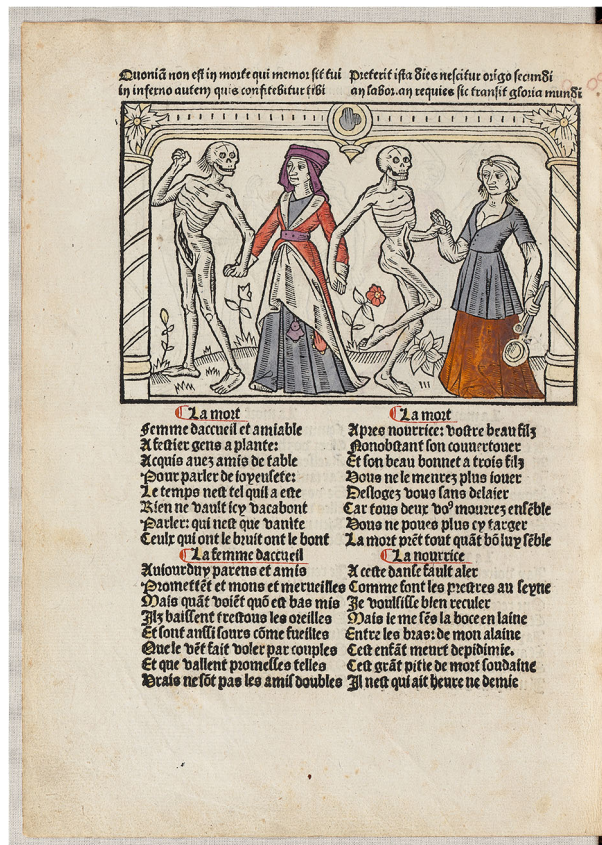 Quoniā non est in morte qui memor sit tui
in inferno autem quis confitebitur tibi
Preterit ista dies nescitur origo secundi
an labor.an requies sic transit gloria mundi
La mort
Femme daccueil et amiable
A festier gens a plante:
Acquis auez amis de table
Pour parler de ioyeusete:
Le temps nest tel quil a este
Rien ne vault icy vacabont
Parler: qui nest que vanite
Ceulx qui ont le bruit ont le bont
La femme daccueil
Auiourduy parens et amis
Promettēt et mons et merueilles
Mais quāt voiēt quō est bas mis
Jlz baissent trestous les oreilles
Et sont aussi sours cōme fueilles
Que le vēt fait voler par couples
Et que vallent promesses telles
Vrais ne sōt pas les amis doubles
La mort
Apres nourrice: vostre beau filz
Nonobstant son couuertouer
Et son beau bonnet a trois filz
Vous ne le menrez plus iouer
Deslogez vous sans delaier
Car tous deux voꝰ mourrez ensēble
Vous ne poues plus cy targer
La mort prēt tout quāt bō luy sēble
La nourrice
A ceste danse fault aler
Comme font les prestres au seyne
Je voulsisse bien reculer
Mais ie me sēs la boce en laine
Entre les bras: de mon alaine
Cest enfāt meurt depidimie.
Cest grāt pitie de mort soudaine
Jl nest qui ait heure ne demie